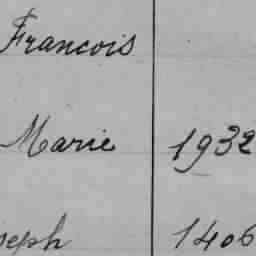 Francois
Marie 1932
seph 1406